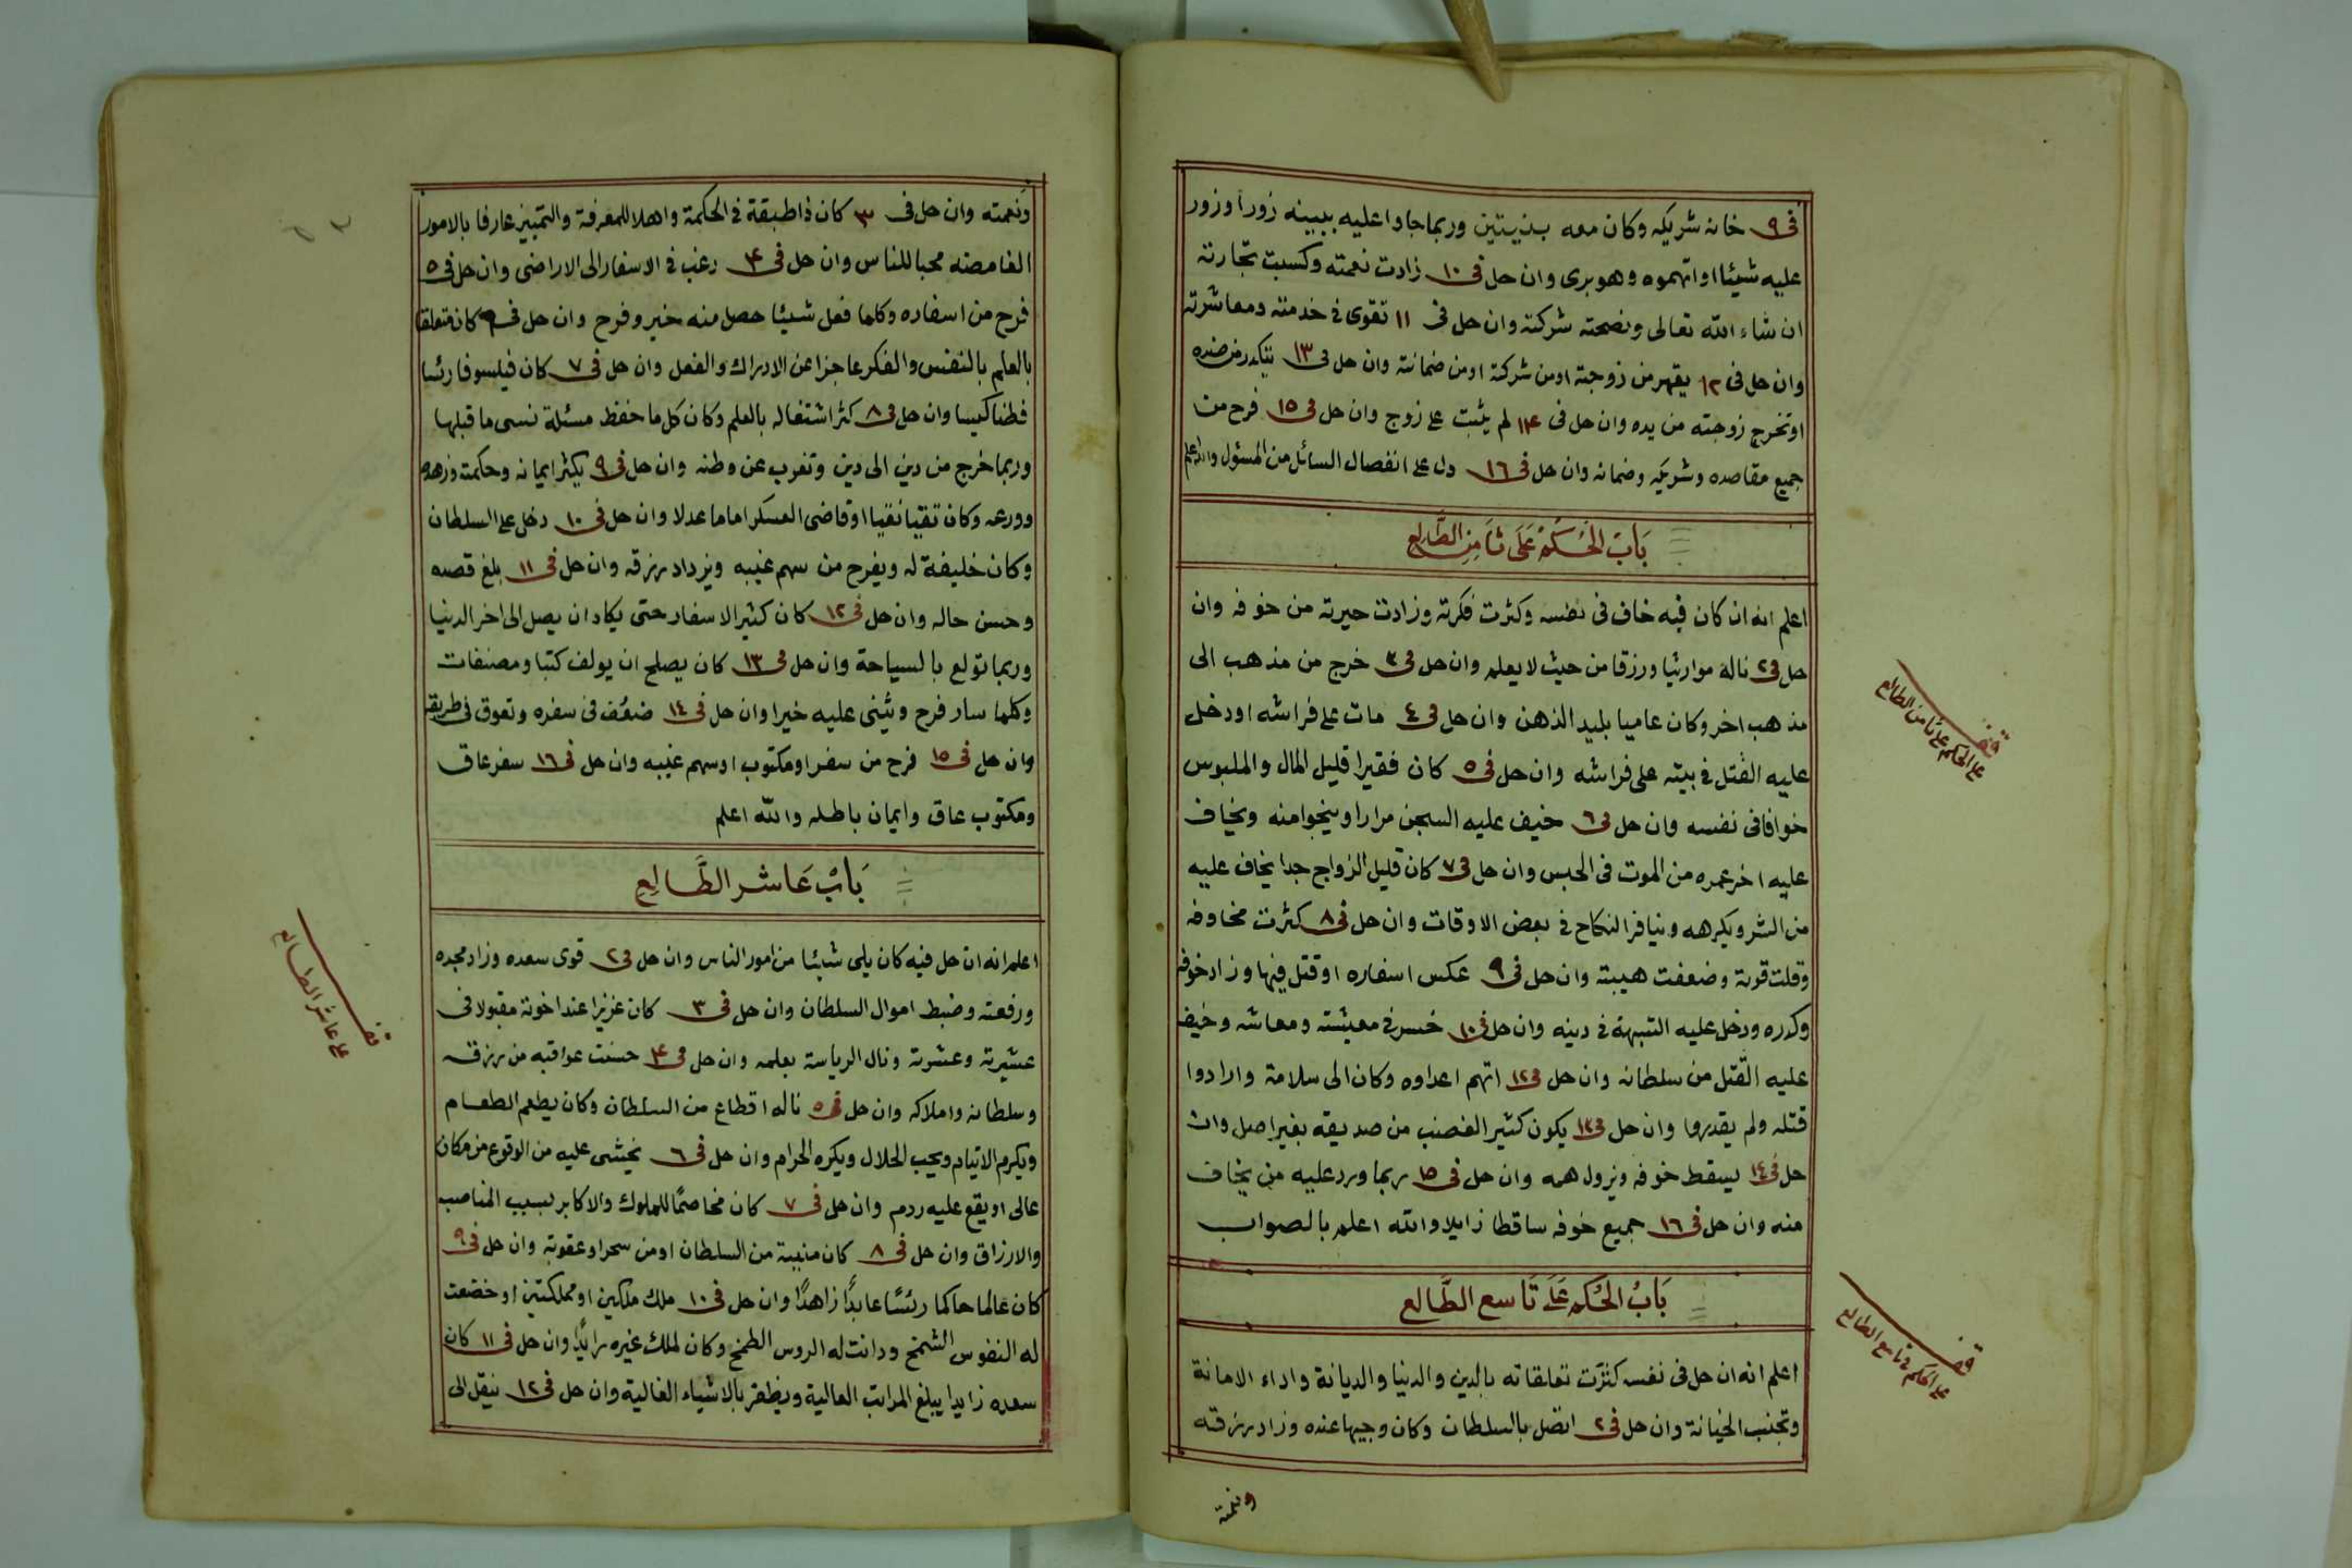 فى ٩ خانه شريكه وكان معه بذيتين وربما جاوا عليه ببينه زورا وزور
عليه شيئا او اتهموه وهو برى وان حل فى ١٠ زادت نعمته وكسبت تجارته
ان شاء الله تعالى ونصحته شركته وان حل فى ١١ تقوى فى خدمته ومعاشرته
وان حل فى ١٢ يقهر من زوجته او من شركته او من ضمانته وان حل فى ١٣ يتكدر من ضده
او تخرج زوجته من يده وان حل فى ١٤ لم يثبت على زوج وان حل فى ١٥ فرح من
جميع مقاصده وشريكه وضمانه وان حل فى ١٦ دل على انفصال السائل من المسئول والله اعلم
بَاب الحُكم عَلَى ثَامِن الطَّالِع
اعلم انه ان كان فيه خاف فى نفسه وكثرت فكرته وزادت حيرته من خوفه وان
حل فى ٢ ناله مواريثا ورزقا من حيث لا يعلم وان حل فى ٣ خرج من مذهب الى
مذهب اخر وكان عاميا بليد الذهن وان حل فى ٤ مات على فراشه او دخل
عليه القتل فى بيته على فراشه وان حل فى ٥ كان فقيرا قليل المال والملبوس
خوافا فى نفسه وان حل فى ٦ خيف عليه السجن مرارا وينجوا منه ويخاف
عليه اخر عمره من الموت فى الحبس وان حل فى ٧ كان قليل الزواج جدا يخاف عليه
من الشر ويكرهه وينافر النكاح فى بعض الاوقات وان حل فى ٨ كثرت مخاوفه
وقلت قوته وضعفت هيبته وان حل فى ٩ عكس اسفاره او قتل فيها وزاد خوفه
وكدره ودخل عليه الشبهة فى دينه وان حل فى ١٠ خسر فى معيشته ومعاشه وخيف
عليه القتل من سلطانه وان حل فى ١٢ اتهم اعداوه وكان الى سلامة وارادوا
قتله ولم يقدروا وان حل فى ١٣ يكون كثير الغضب من صديقه بغير اصل وان
حل فى ١٤ يسقط خوفه ويزول همه وان حل فى ١٥ ربما ورد عليه من يخاف
منه وان حل فى ١٦ جميع خوفه ساقطا زايلا والله اعلم بالصواب
بَابُ الحُكم عَلَى تَاسع الطَّالع
اعلم انه ان حل فى نفسه كثرت تعلقاته بالدين والدنيا والديانة واداء الامانة
وتجنب الخيانة وان حل فى ٢ اتصل بالسلطان وكان وجيها عنده وزاد رزقه
ونعمته
قف
على الحكم على ثامن الطالع
قف
على الحكم فى تاسع الطالع
ونعمته وان حل فى ٣ كان ذا طبقة فى الحكمة واهلا للمعرفة والتمييز عارفا بالامور
الغامضه محبا للناس وان حل فى ٤ رغب فى الاسفار الى الاراضى وان حل فى ٥
فرح من اسفاره وكلما فعل شيئا حصل منه خير وفرح وان حل فى ٦ كان متعلقا
بالعلم بالنفس والفكر عاجزا عن الادراك والفعل وان حل فى ٧ كان فيلسوفا رئسا
فطنا كيسا وان حل فى ٨ كثر اشتغاله بالعلم وكان كل ما حفظ مسئلة نسى ما قبلها
وربما خرج من دين الى دين وتغرب عن وطنه وان حل فى ٩ يكثر ايمانه وحكمته وزهده
وورعه وكان تقيا نقيا او قاضى العسكر اماما عدلا وان حل فى ١٠ دخل على السلطان
وكان خليفة له ويفرح من سهم غيبه ويزداد رزقه وان حل فى ١١ بلغ قصده
وحسن حاله وان حل فى ١٢ كان كثير الاسفار حتى يكاد ان يصل الى اخر الدنيا
وربما تولع بالسياحة وان حل فى ١٣ كان يصلح ان يولف كتبا ومصنفات
وكلما سار فرح ويثنى عليه خيرا وان حل فى ١٤ ضعُف فى سفره وتعوق فى طريقه
وان حل فى ١٥ فرح من سفر او مكتوب او سهم غيبه وان حل فى ١٦ سفر عاق
ومكتوب عاق وايمان باطله والله اعلم
بَابُ عَاشر الطَّالِع
اعلم انه ان حل فيه كان يلى شائنا من امور الناس وان حل فى ٢ قوى سعده وزاد مجده
ورفعته وضبط اموال السلطان وان حل فى ٣ كان عزيزا عند اخوته مقبولا فى
عشيرته وعشرته ونال الرياسة بعلمه وان حل فى ٤ حسنت عواقبه من رزقه
وسلطانه واملاكه وان حل فى ٥ ناله اقطاع من السلطان وكان يطعم الطعام
ويكرم الايتام ويحب الحلال ويكره الحرام وان حل فى ٦ يخشى عليه من الوقوع من مكان
عالى او يقع عليه ردم وان حل فى ٧ كان مخاصمًا للملوك والاكابر بسبب المناصب
والارزاق وان حل فى ٨ كان منيبة من السلطان او من سحر او عقوبة وان حل فى ٩
كان عالما حاكما رئسًا عابدًا زاهدًا وان حل فى ١٠ ملك ملكين او مملكتين او خضعت
له النفوس الشمخ ودانت له الروس الطمخ وكان لملك غيره رايدًا وان حل فى ١١ كان
سعده زايدا يبلغ المراتب العالية ويظفر بالاشياء الغالية وان حل فى ١٢ ينقل الى
قف
على عاشر الطالع